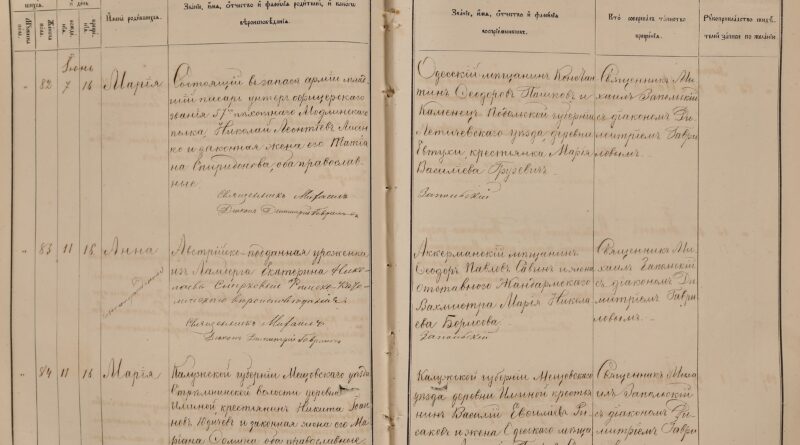 Имѧ родившихсѧ.
Званіе, имѧ, отчество и фамилія родителей, и какого
вѣроисповѣданія.
Званіе, имѧ, отчество и фамилія
воспріемниковъ.
Кто совершалъ таинство
крещенія.
Рукоприкладство свидѣ-
телей записи по желанію
Іюнь
82 7 16 Марія
Состоящій въ запасѣ арміи
писарь унтеръ офицерскаго
званія 57го пѣхотнаго Модлинскаго
полка, Николай Леонтіевъ Лисен-
ко и законная жена его Татія-
на Спиридонова, оба православ-
ные.
Священникъ Михаилъ
Діаконъ Димитрій Гавриловъ
Одесскій мѣщанинъ Констан
тинъ Ѳеодоровъ Пашковъ и
Каменецъ Подольской губерніи
Летичевскаго уѣзда, деревни
Евтухи, крестьянка Марія
Василіева Грузевичъ.
Запольскій
Священникъ Ми-
хаилъ Запольскій
съ діакономъ Ди-
митріемъ Гаври
ловымъ.
83 11 16 Анна
Австрійско-подданная уроженка
Екатерина Нико-
лаева Римско-Като-
лическаго вѣроисповѣданія
Священникъ Михаилъ
Діаконъ Димитрій Гавриловъ
Аккерманскій мѣщанинъ
Ѳеодоръ Павловъ Савинъ и жена
отставного Жандармскаго
Вахмистра Марія Никола
ева Борисова.
Запольскій
Священникъ Ми-
хаилъ Запольскій
съ діакономъ Ди-
митріемъ Гаври
ловымъ.
84 11 16 Марія
Калужской губерніи Мещовскаго уѣзда
волости деревни
Илиной крестьянинъ Никита Іоан
невъ и законная жена его Ма-
ріана оба православные.
Калужской губерніи Мещовскаго
уѣзда деревни Илиной крестья
нинъ Василій Евсиліевъ Ри-
саковъ и жена Одесскаго мѣща
Священникъ Миха
илъ Запольскій
съ діакономъ Ди-
митріемъ Гаври